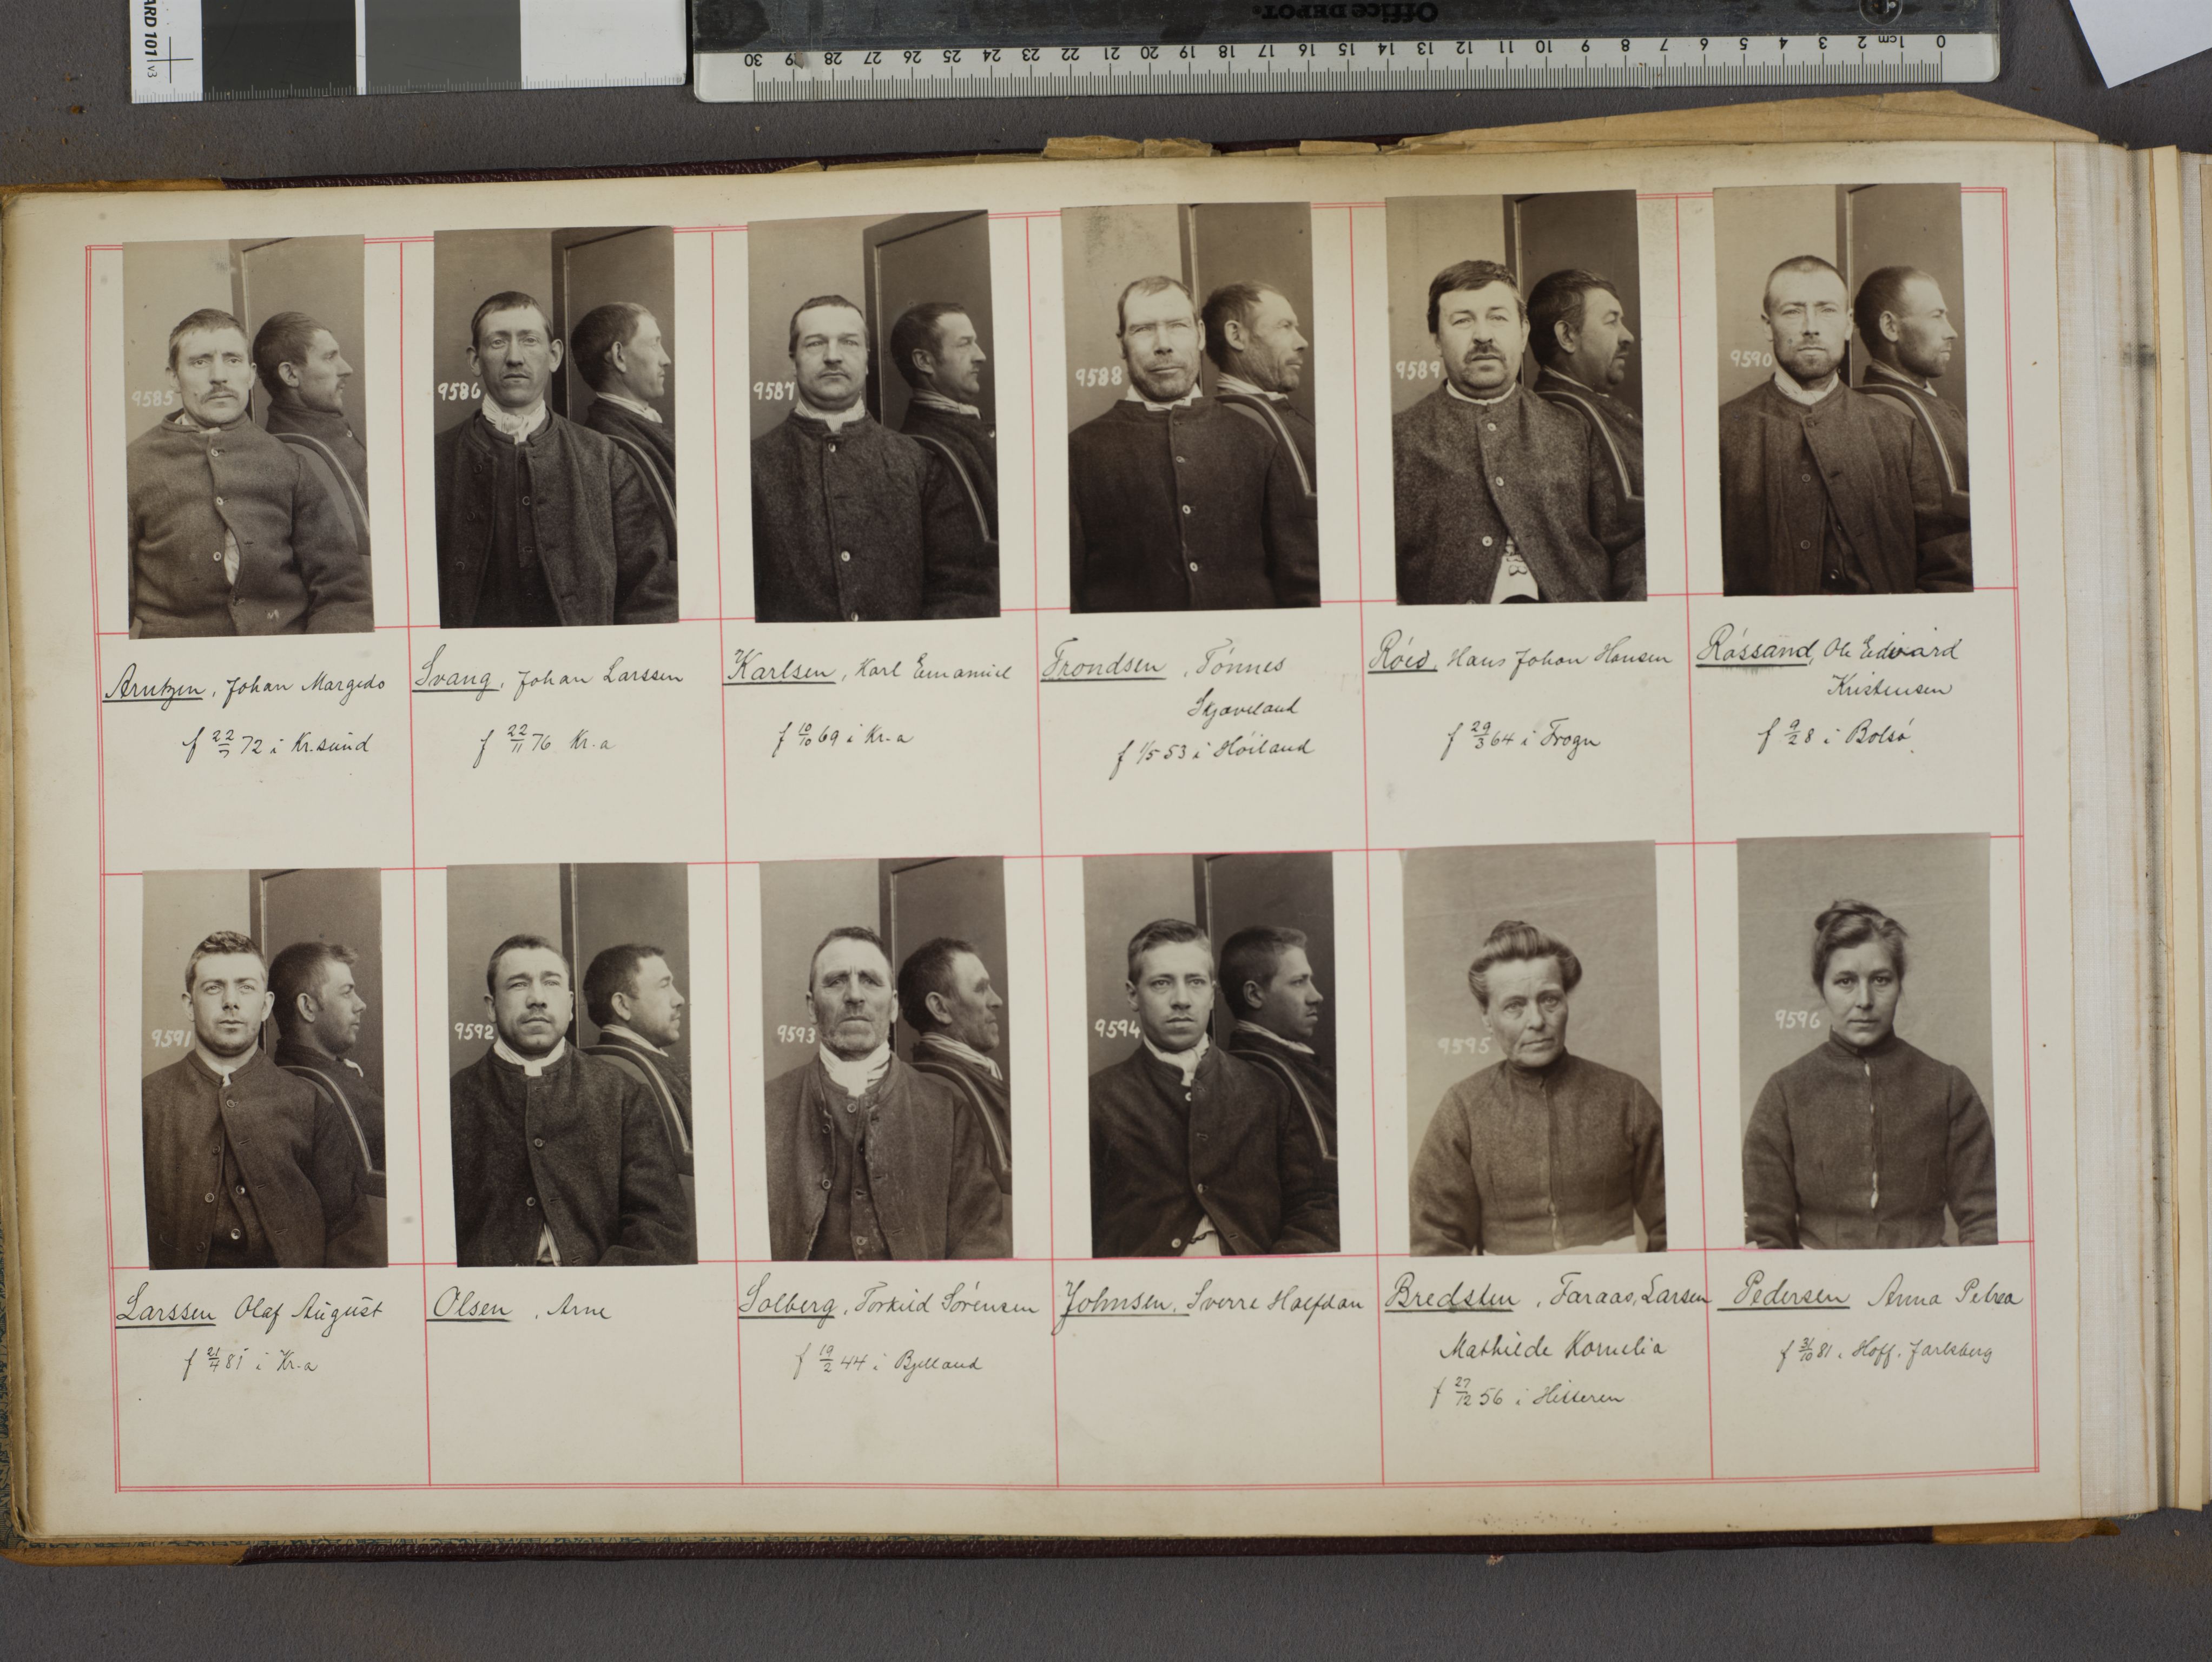 ARD 101 v3
Office DEPOT.
30 29 28 27 26 25 24 23 22 21 20 19 18 17 16 15 14 13 12 11 10 9 8 7 6 5 4 3 2 1cm 0
9585
9586
9587
9588
9589
9590
Arntzen, Johan Margido
f 22/7 72 i Kr.sund
Svang, Johan Larssen
f 22/11 76 Kr.a
Karlsen, Karl Emanuel
f 10/10 69 i Kr.a
Trondsen, Tönnes
Skjæveland
f 1/5 53 i Höiland
Röed, Hans Johan Hansen
f 29/3 64 i Frogn
Rössand, Ole Edvard
Kristensen
f 9/2 8 i Bolsö
9591
9592
9593
9594
9595
9596
Larssen Olaf August
f 21/4 81 i Kr.a
Olsen, Arne
Solberg, Torkild Sörensen
f 19/2 44 i Bjelland
Johnsen, Sverre Halfdan
Bredsten, Faraas, Larsen
Mathilde Kornelia
f 27/12 56 i Hisseren
Pedersen Anna Petrea
f 31/10 81 i Hoff. Jarlsberg